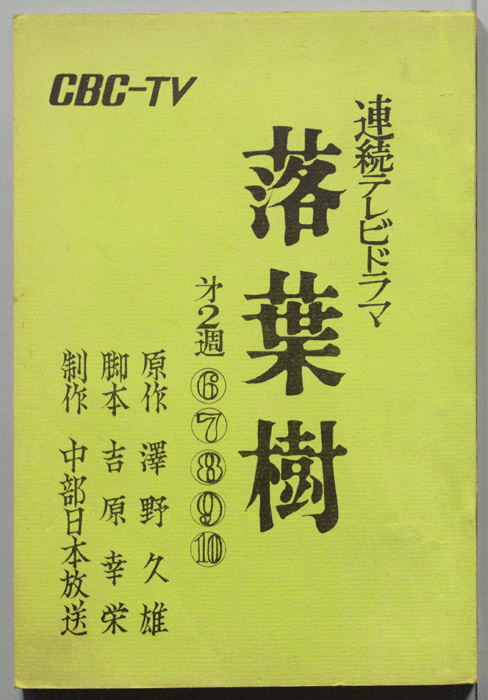 CBC-TV
連続テレビドラマ
落葉樹
才2週 ⑥⑦⑧⑨⑩
原作 澤野久雄
脚本 吉原幸栄
制作 中部日本放送